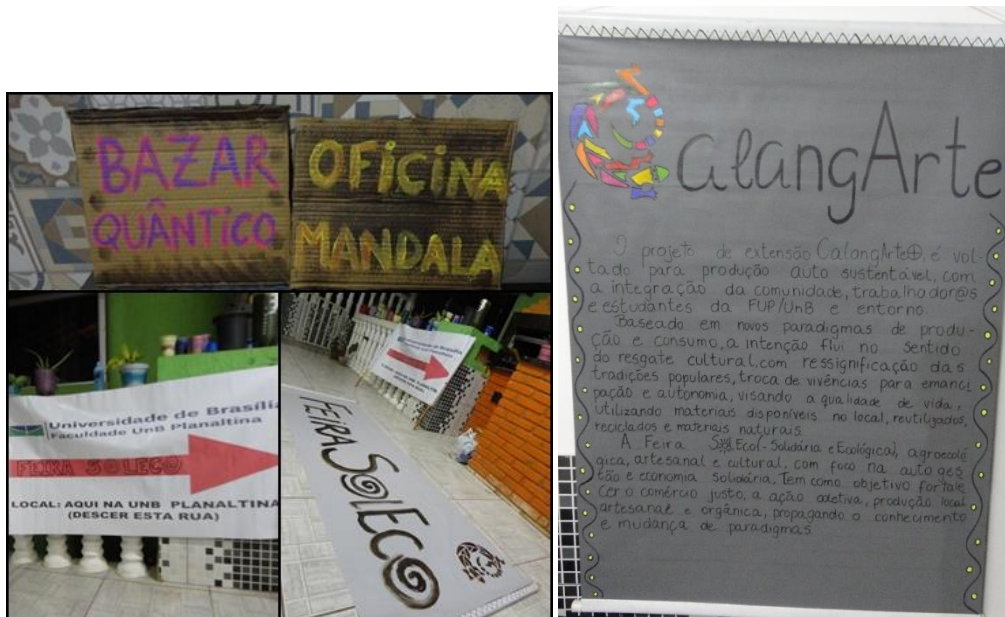 BAZAR
QUÂNTICO
OFICINA
MANDALA
Universidade de Brasília
Faculdade UnB Planaltina
FEIRA SOLECO
LOCAL: AQUI NA UNB PLANALTINA
(DESCER ESTA RUA)
Universidade de Brasília
FEIRA SOLECO
CalangArte
O projeto de extensão CalangArte, é vol-
tado para produção auto sustentável, com
a integração da comunidade, trabalhador@s
e estudantes da FUP/UnB e entorno.
Baseado em novos paradigmas de produ-
ção e consumo, a intenção flui no sentido
do resgate cultural, com ressignificação das
tradições populares, troca de vivências para emanci
pação e autonomia, visando a qualidade de vida,
utilizando materiais disponíveis no local, reutilizados,
reciclados e materiais naturais.
A Feira SolEco(-Solidária e Ecológica), agroecoló
gica, artesanal e cultural, com foco na auto ges
tão e economia solidária. Tem como objetivo fortale
cer o comércio justo, a ação coletiva, produção local
artesanal e orgânica, propagando o conhecimento
e mudança de paradigmas